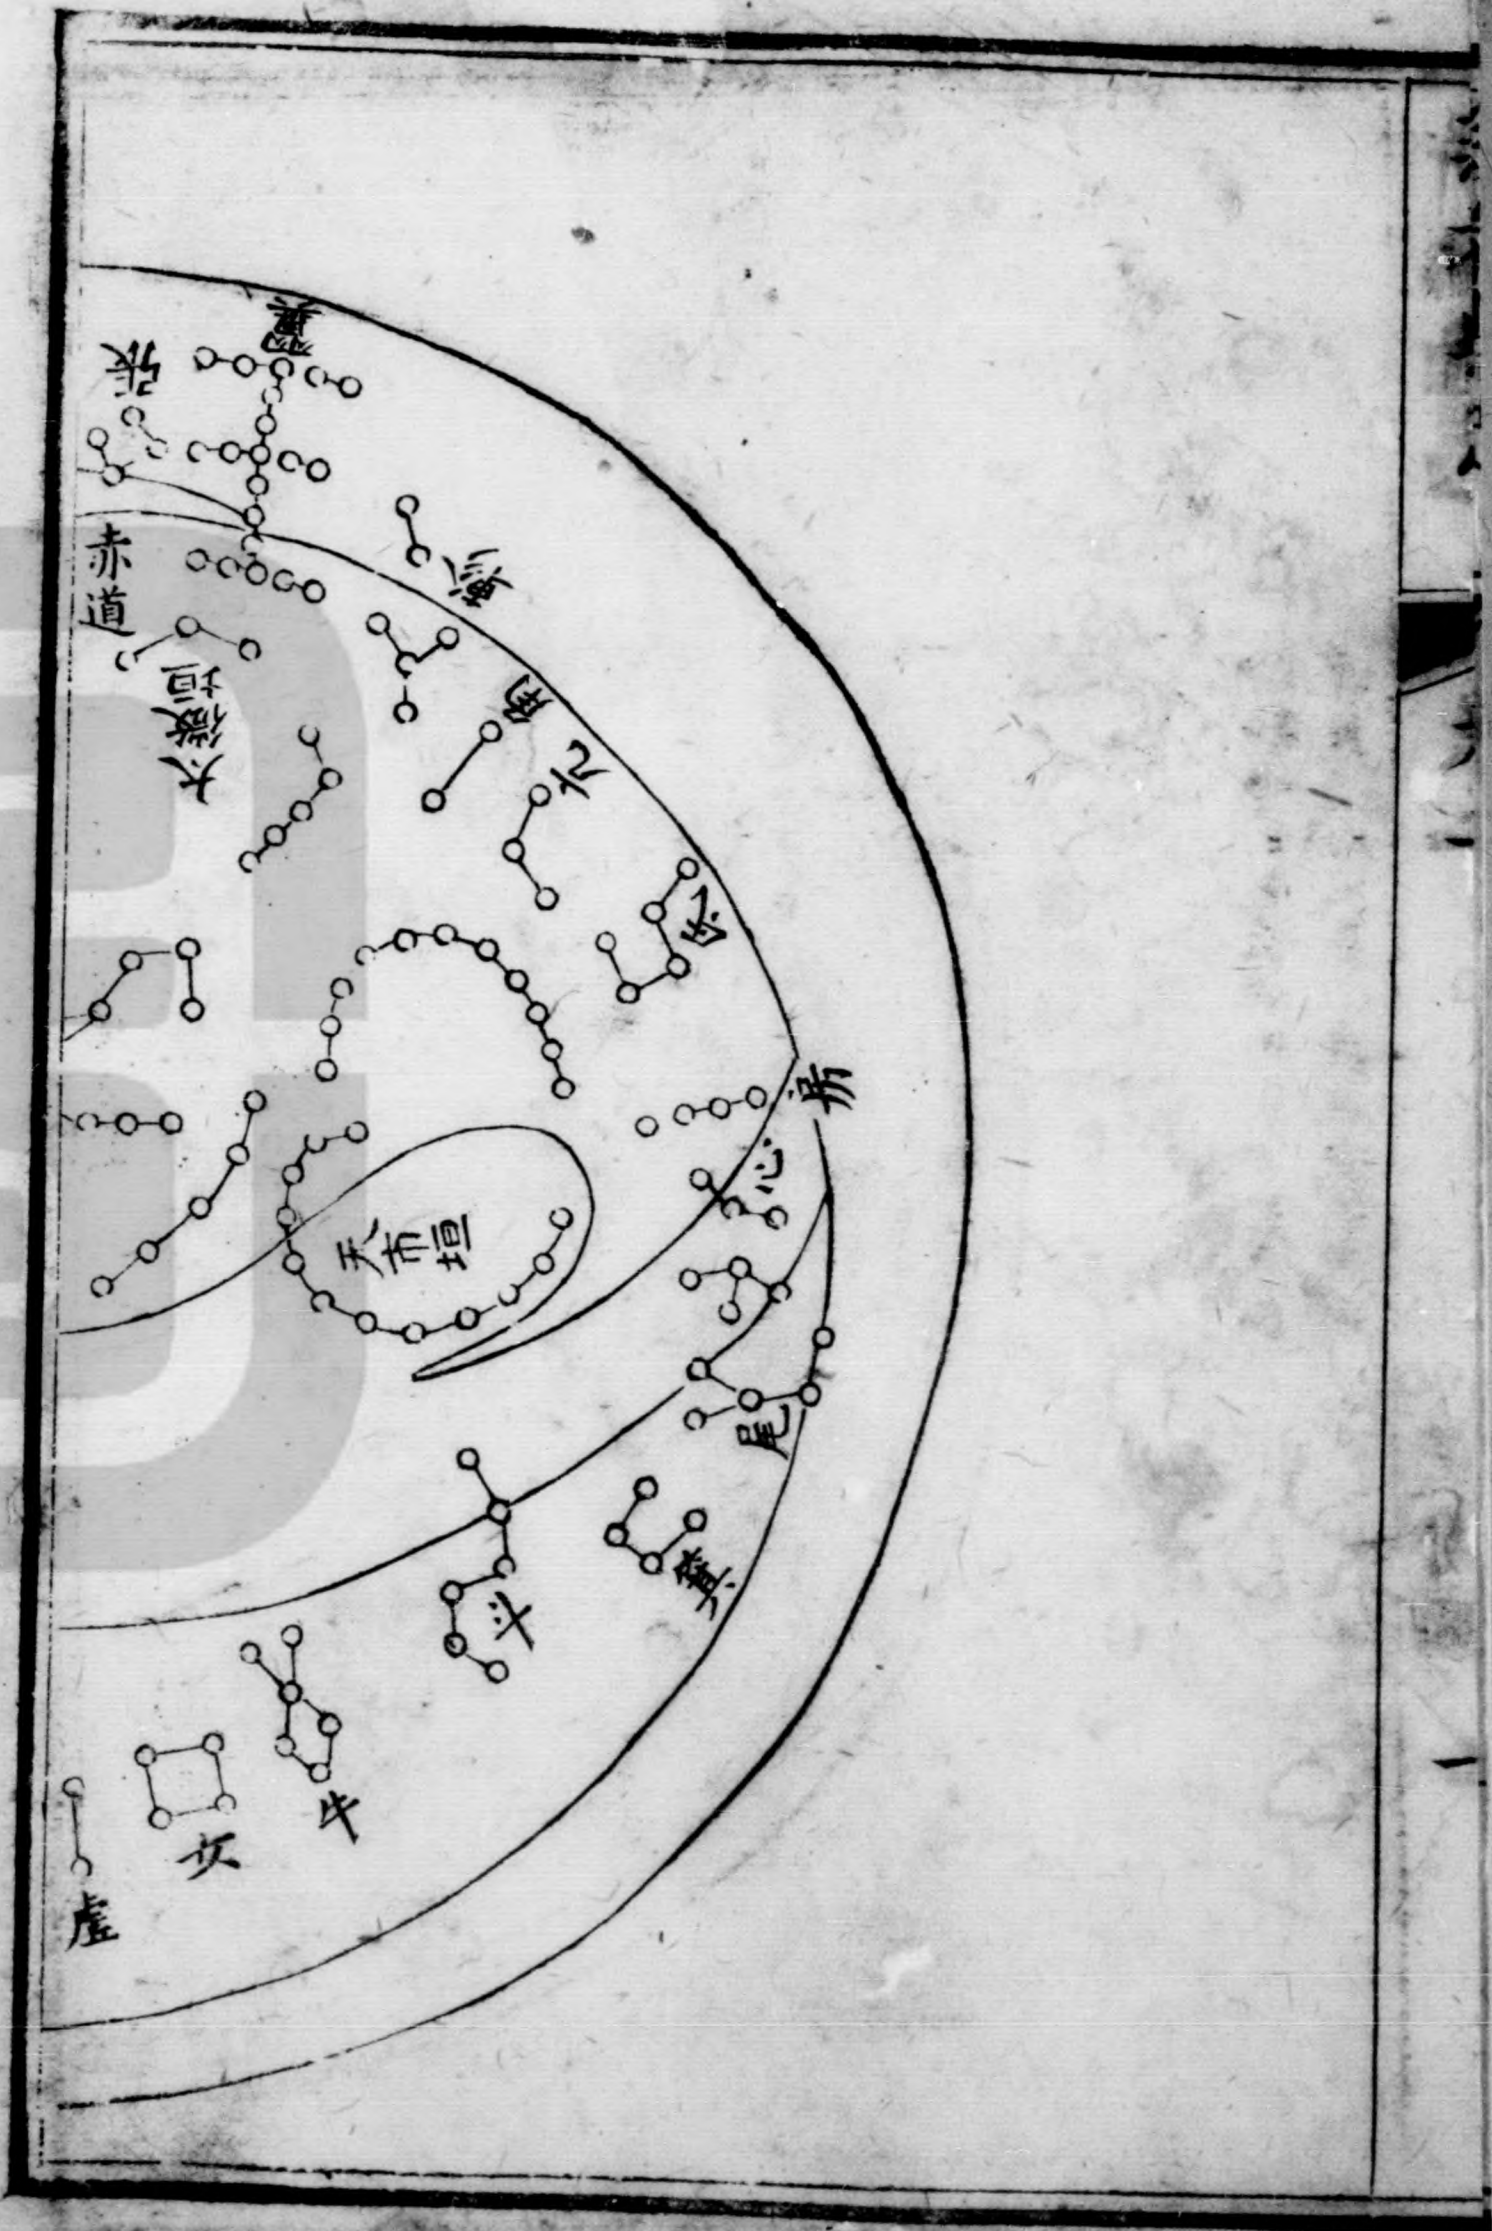 翼
張
軫
赤道
太微垣
角
亢
氐
房
心
天市垣
尾
箕
斗
牛
女
虛